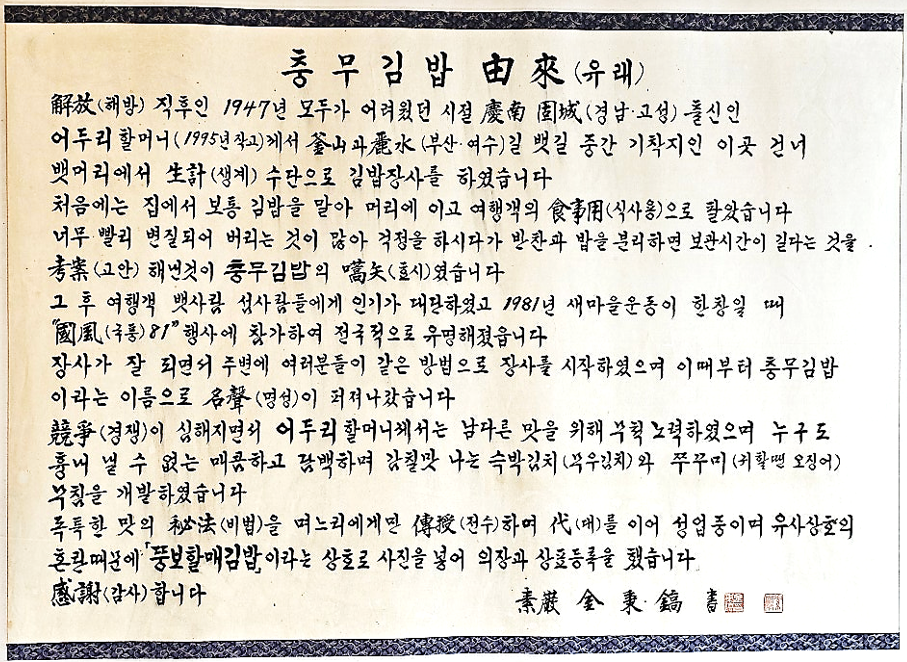 충무김밥 由來(유래)
解放(해방) 직후인 1947년 모두가 어려웠던 시절 慶南 固城(경남·고성) 출신인
어두리할머니(1995년작고)께서 釜山과麗水(부산·여수)길 뱃길 중간 기착지인 이곳 건너
뱃머리에서 生計(생계) 수단으로 김밥장사를 하였습니다
처음에는 집에서 보통 김밥을 말아 머리에 이고 여행객의 食事用(식사용)으로 팔았습니다
너무 빨리 변질되어 버리는 것이 많아 걱정을 하시다가 반찬과 밥을 분리하면 보관시간이 길다는 것을
考案(고안) 해낸것이 충무김밥의 嚆矢(효시)였습니다
그 후 여행객 뱃사람 섬사람들에게 인기가 대단하였고 1981년 새마을운동이 한창일 때
"國風(국풍)81"행사에 참가하여 전국적으로 유명해졌습니다
장사가 잘 되면서 주변에 여러분들이 같은 방법으로 장사를 시작하였으며 이때부터 충무김밥
이라는 이름으로 名聲(명성)이 퍼져나갔습니다
競爭(경쟁)이 심해지면서 어두리할머니께서는 남다른 맛을 위해 무척 노력하였으며 누구도
흉내 낼 수 없는 매콤하고 담백하며 감칠맛 나는 숙박김치(무우김치)와 쭈꾸미(귀할땐 오징어)
무침을 개발하였습니다
독특한 맛의 秘法(비법)을 며느리에게만 傳授(전수)하며 代(대)를 이어 성업중이며 유사상호의
혼란때문에 「뚱보할매김밥」이라는 상호로 사진을 넣어 의장과 상표등록을 했습니다
感謝(감사)합니다
素嚴 金 秉 鎬 書